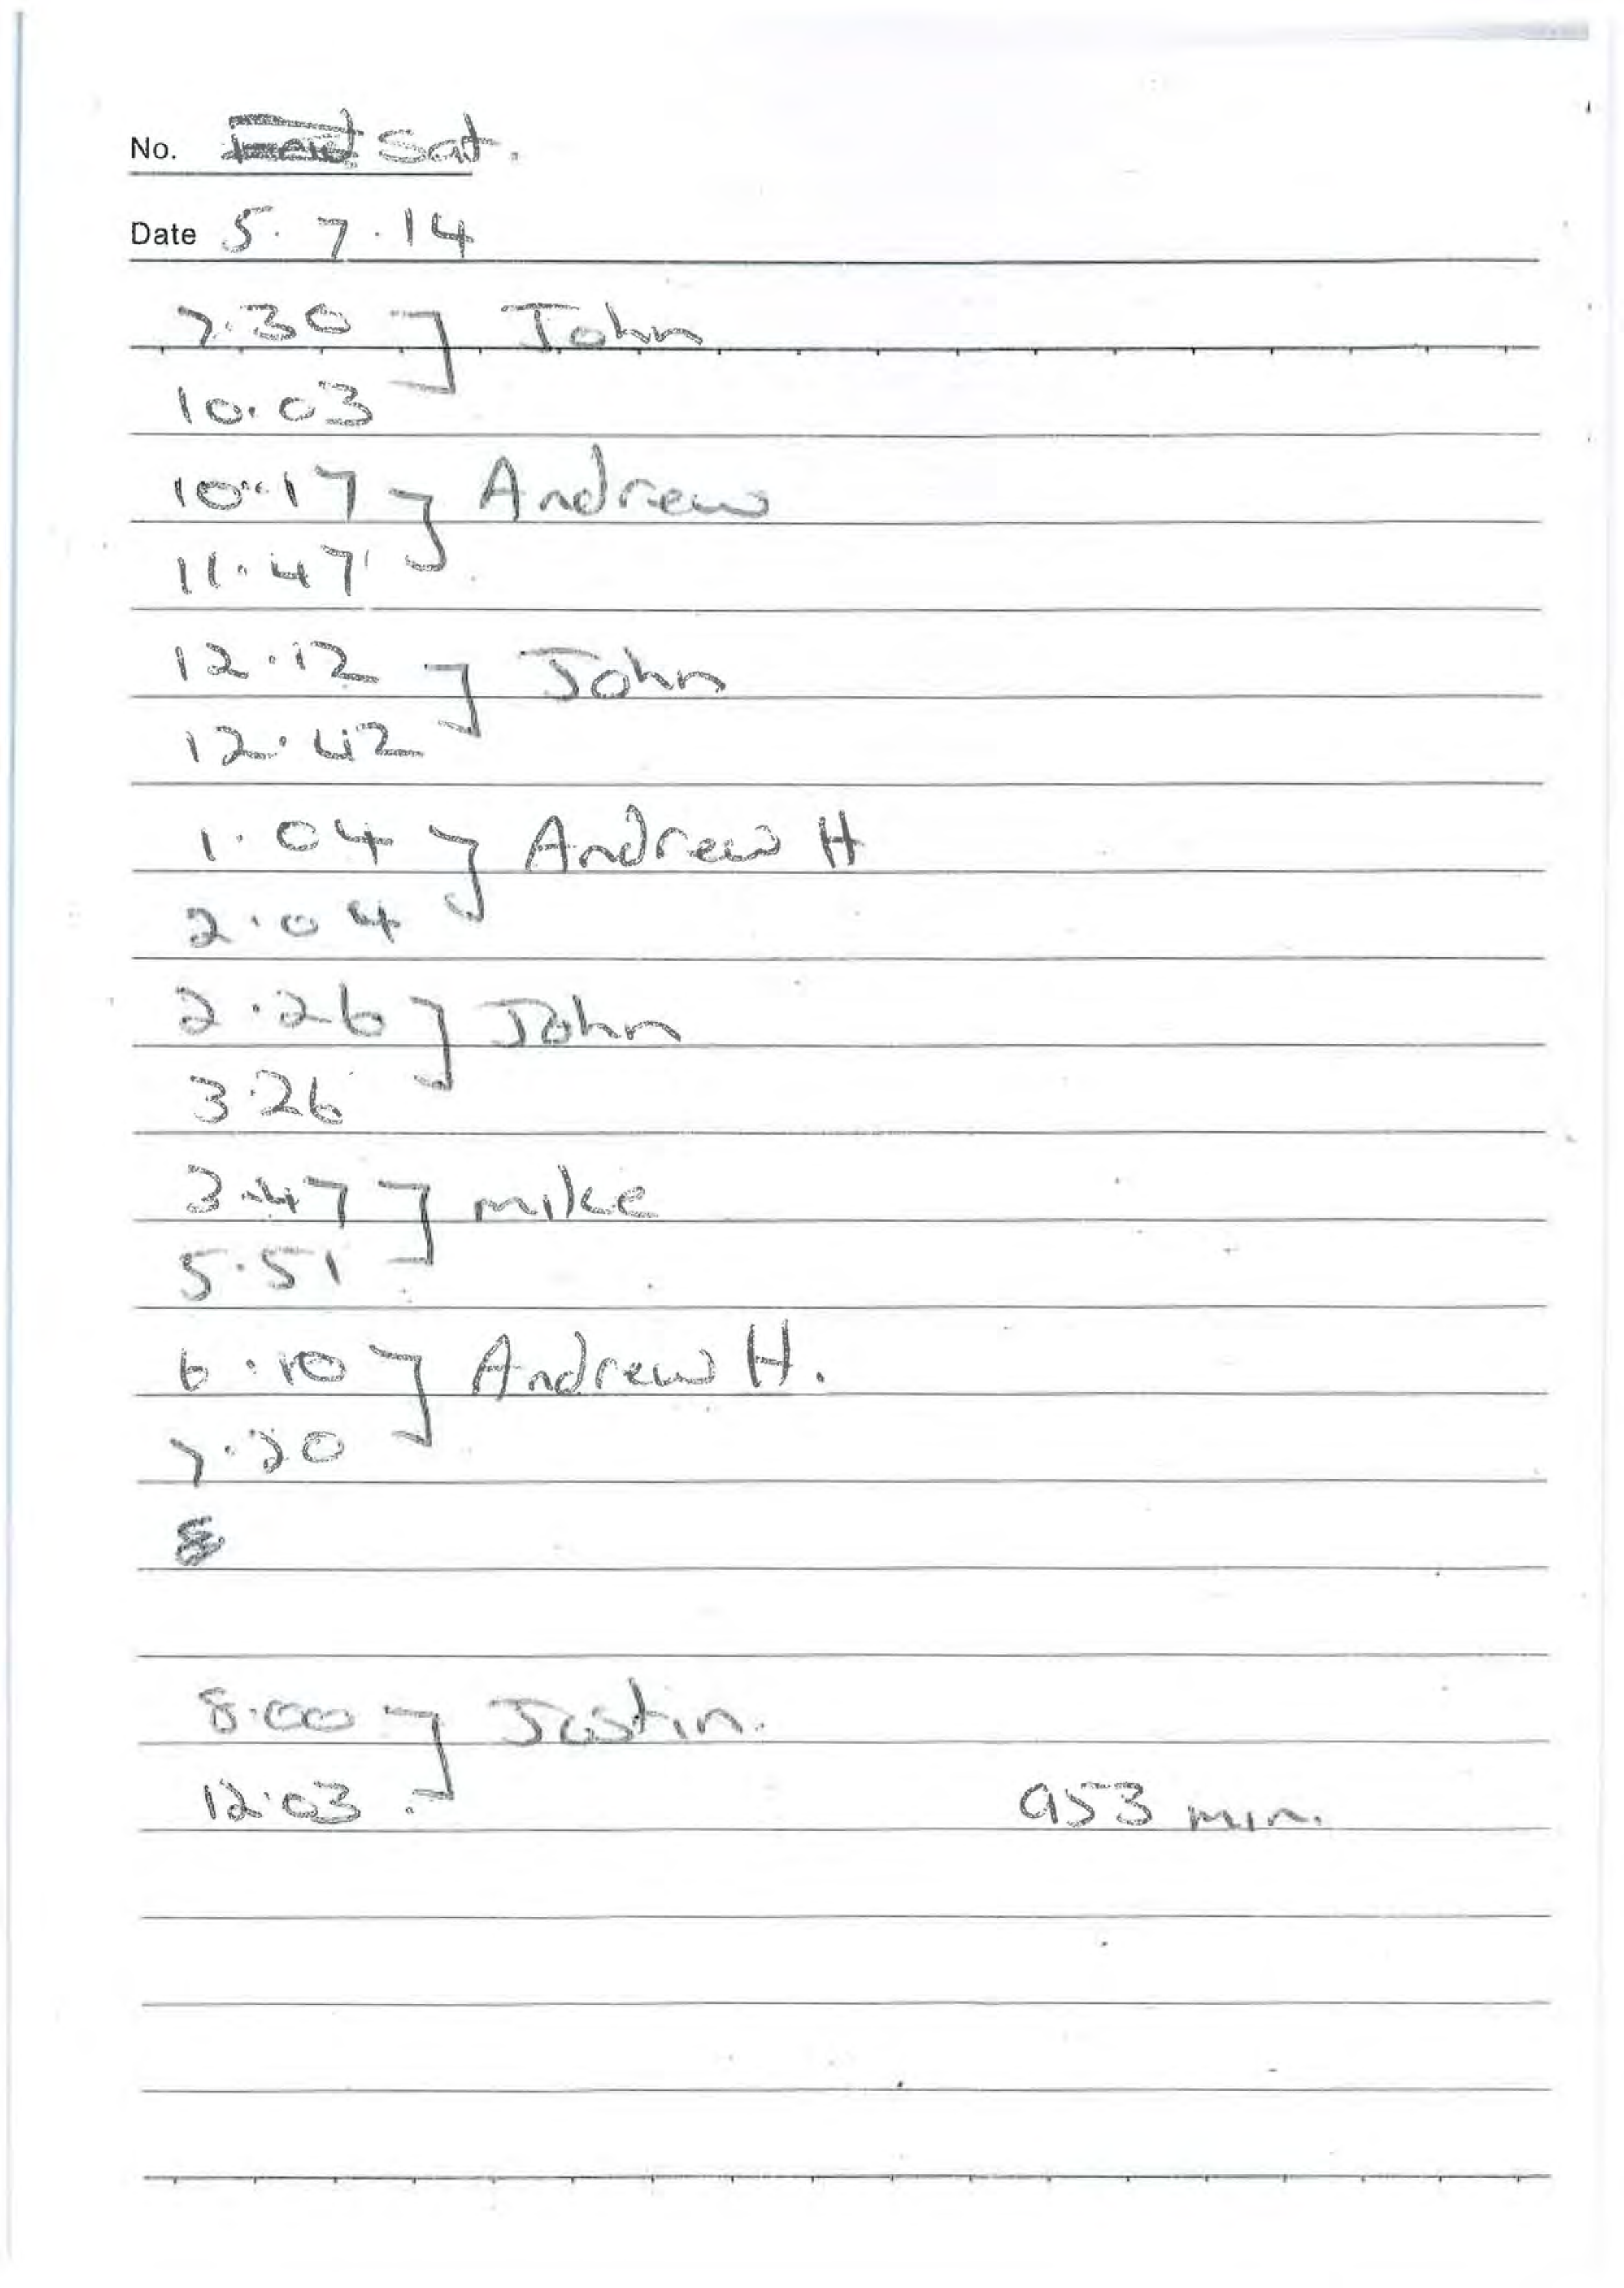 No. Sat.
Date 5.7.14
7.30 ] John
10.03
10.17 ] Andrew
11.47
12.12 ] John
12.42
1.04 ] Andrew H
2.04
2.26 ] John
3.26
3.47 ] mike
5.51
6.10 ] Andrew H.
7.20
8
8.00 ] Justin.
12.03 953 min.